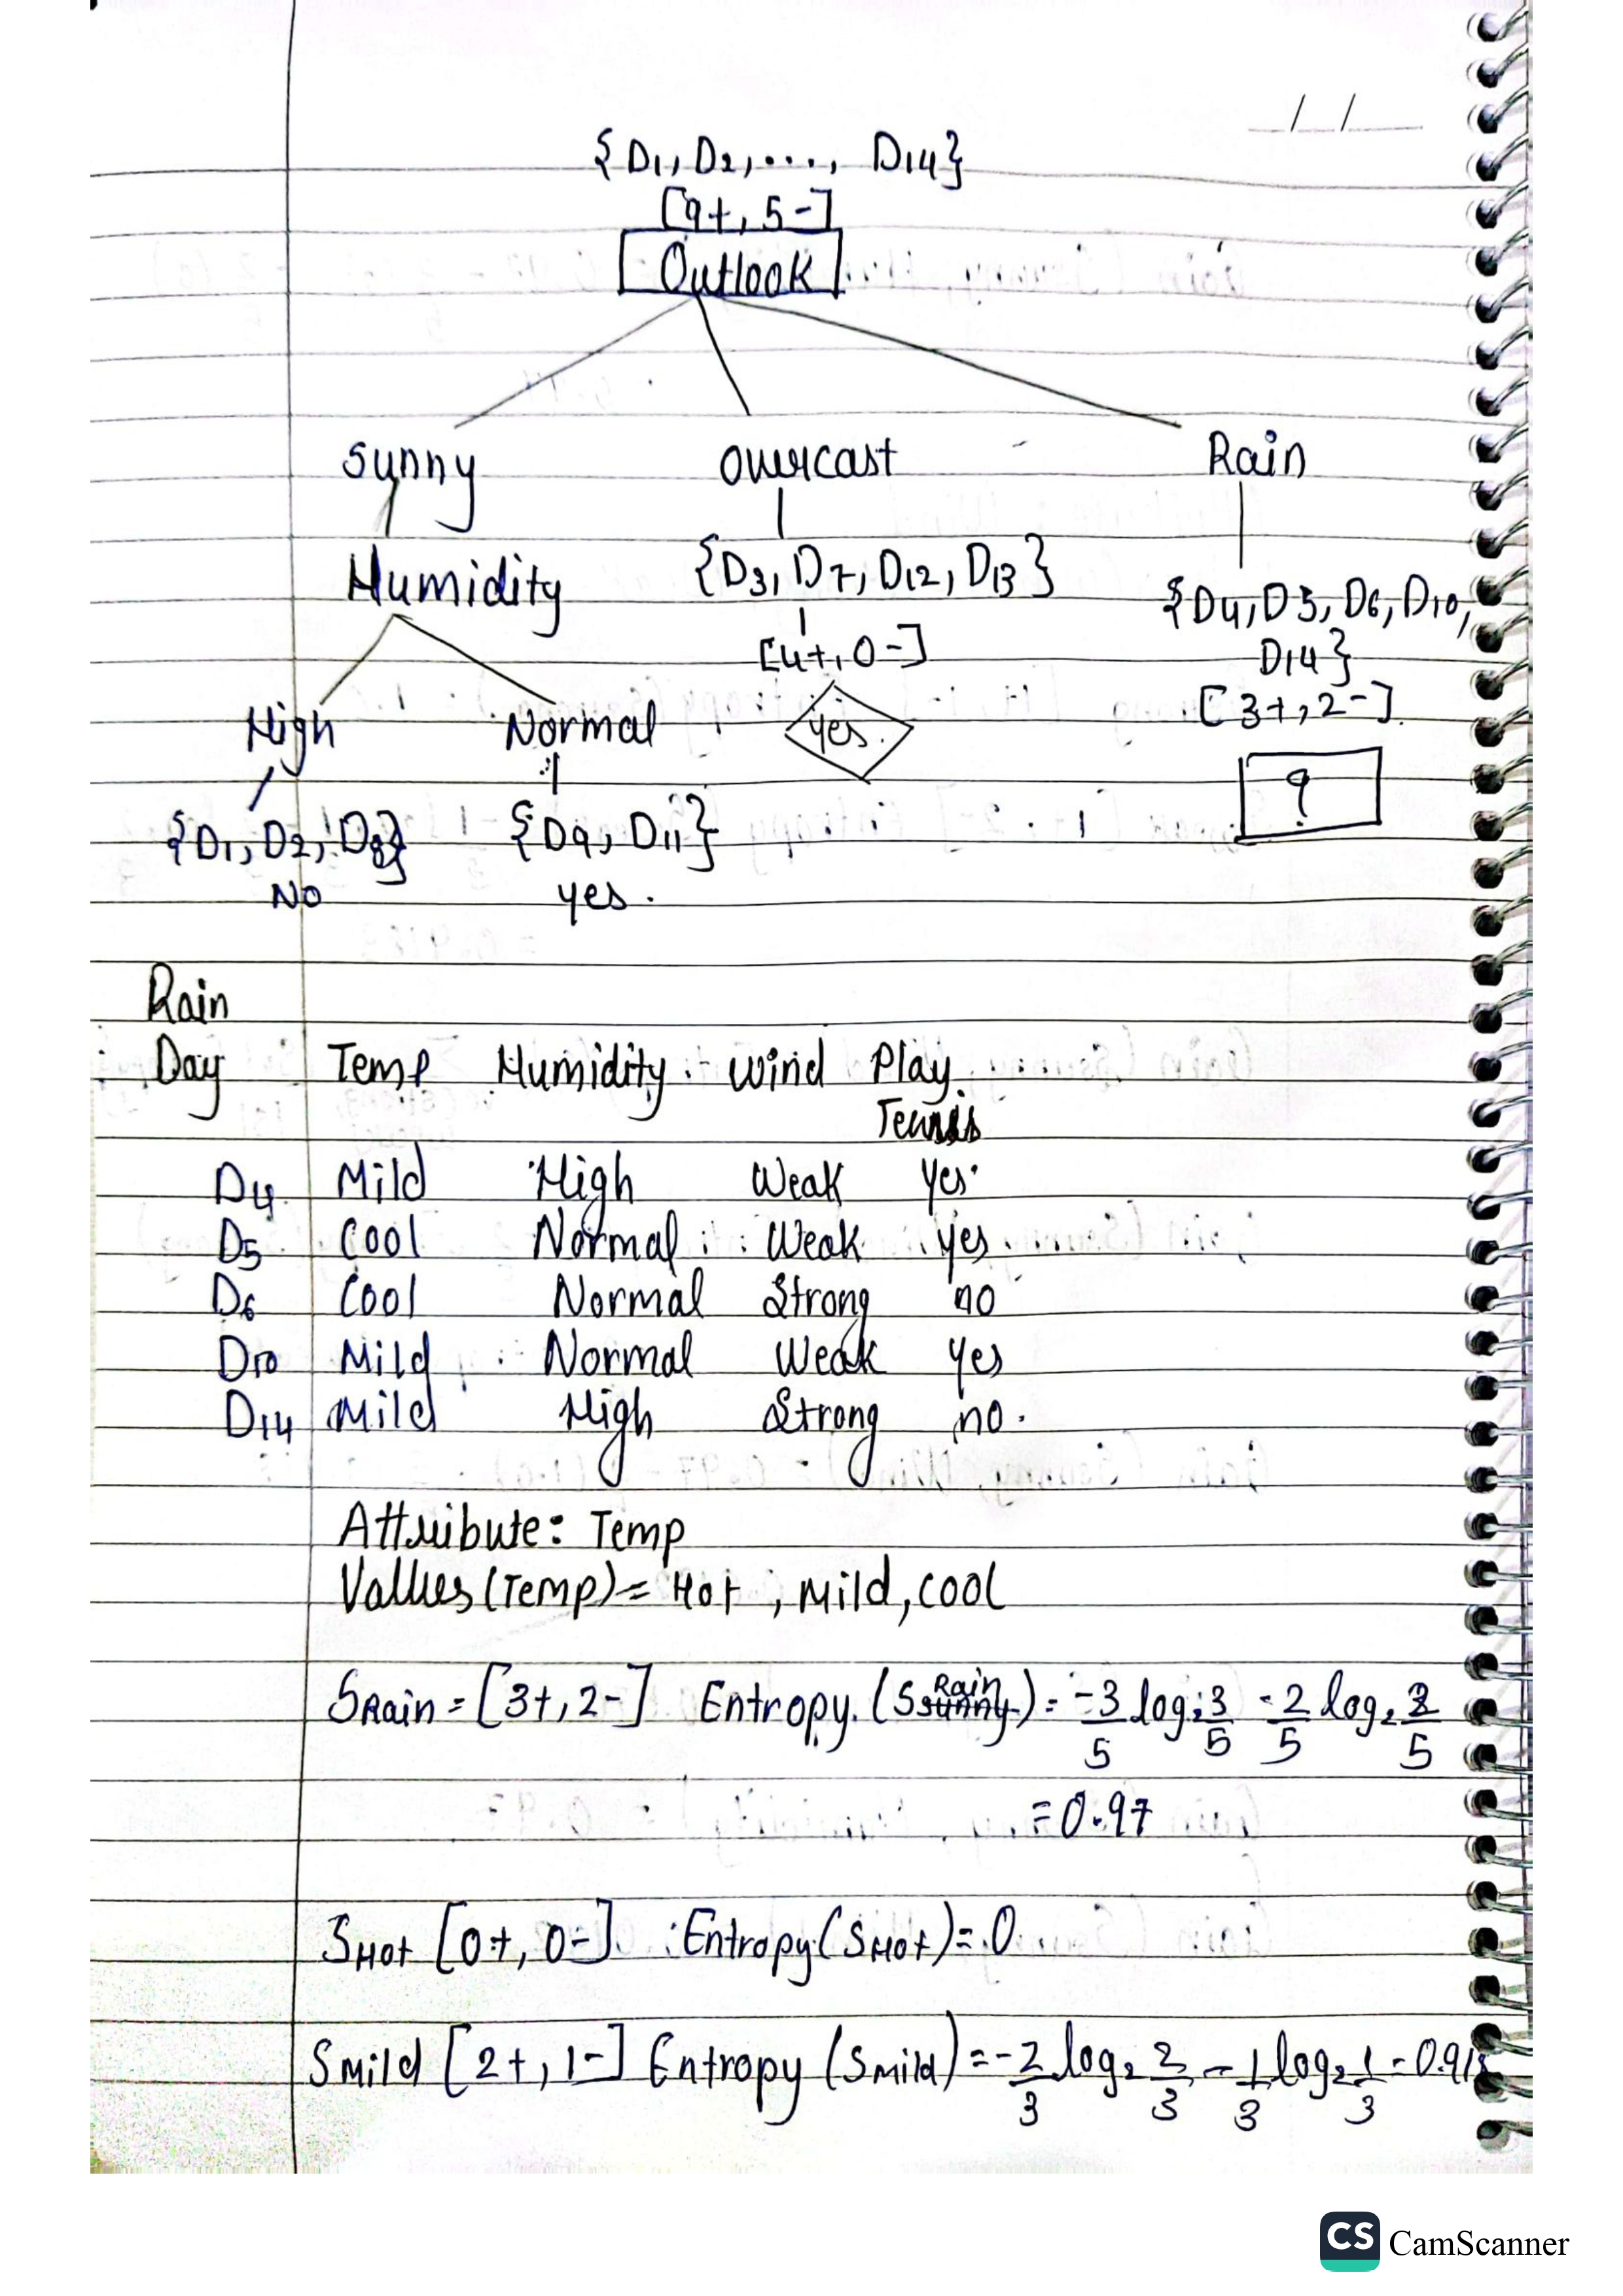 __/__/____
{D1, D2, ...., D14}
[9+, 5-]
Outlook
Sunny Overcast Rain
Humidity {D3, D7, D12, D13} {D4, D5, D6, D10,
[4+, 0-] D14}
High Normal yes. [3+, 2-].
{D1, D2, D8} {D9, D11} ?
NO yes.
Rain
Day Temp Humidity Wind Play
Tennis
D4 Mild High Weak yes
D5 Cool Normal Weak yes
D6 Cool Normal Strong no
D10 Mild Normal Weak yes
D14 Mild High Strong no.
Attribute: Temp
Values (Temp) = Hot, Mild, Cool
SRain = [3+, 2-] Entropy. (SRain) = -3/5 log2 3/5 - 2/5 log2 2/5
= 0.97
SHot [0+, 0-] Entropy (SHot) = 0
SMild [2+, 1-] Entropy (SMild) = -2/3 log2 2/3 - 1/3 log2 1/3 = 0.918
CS CamScanner